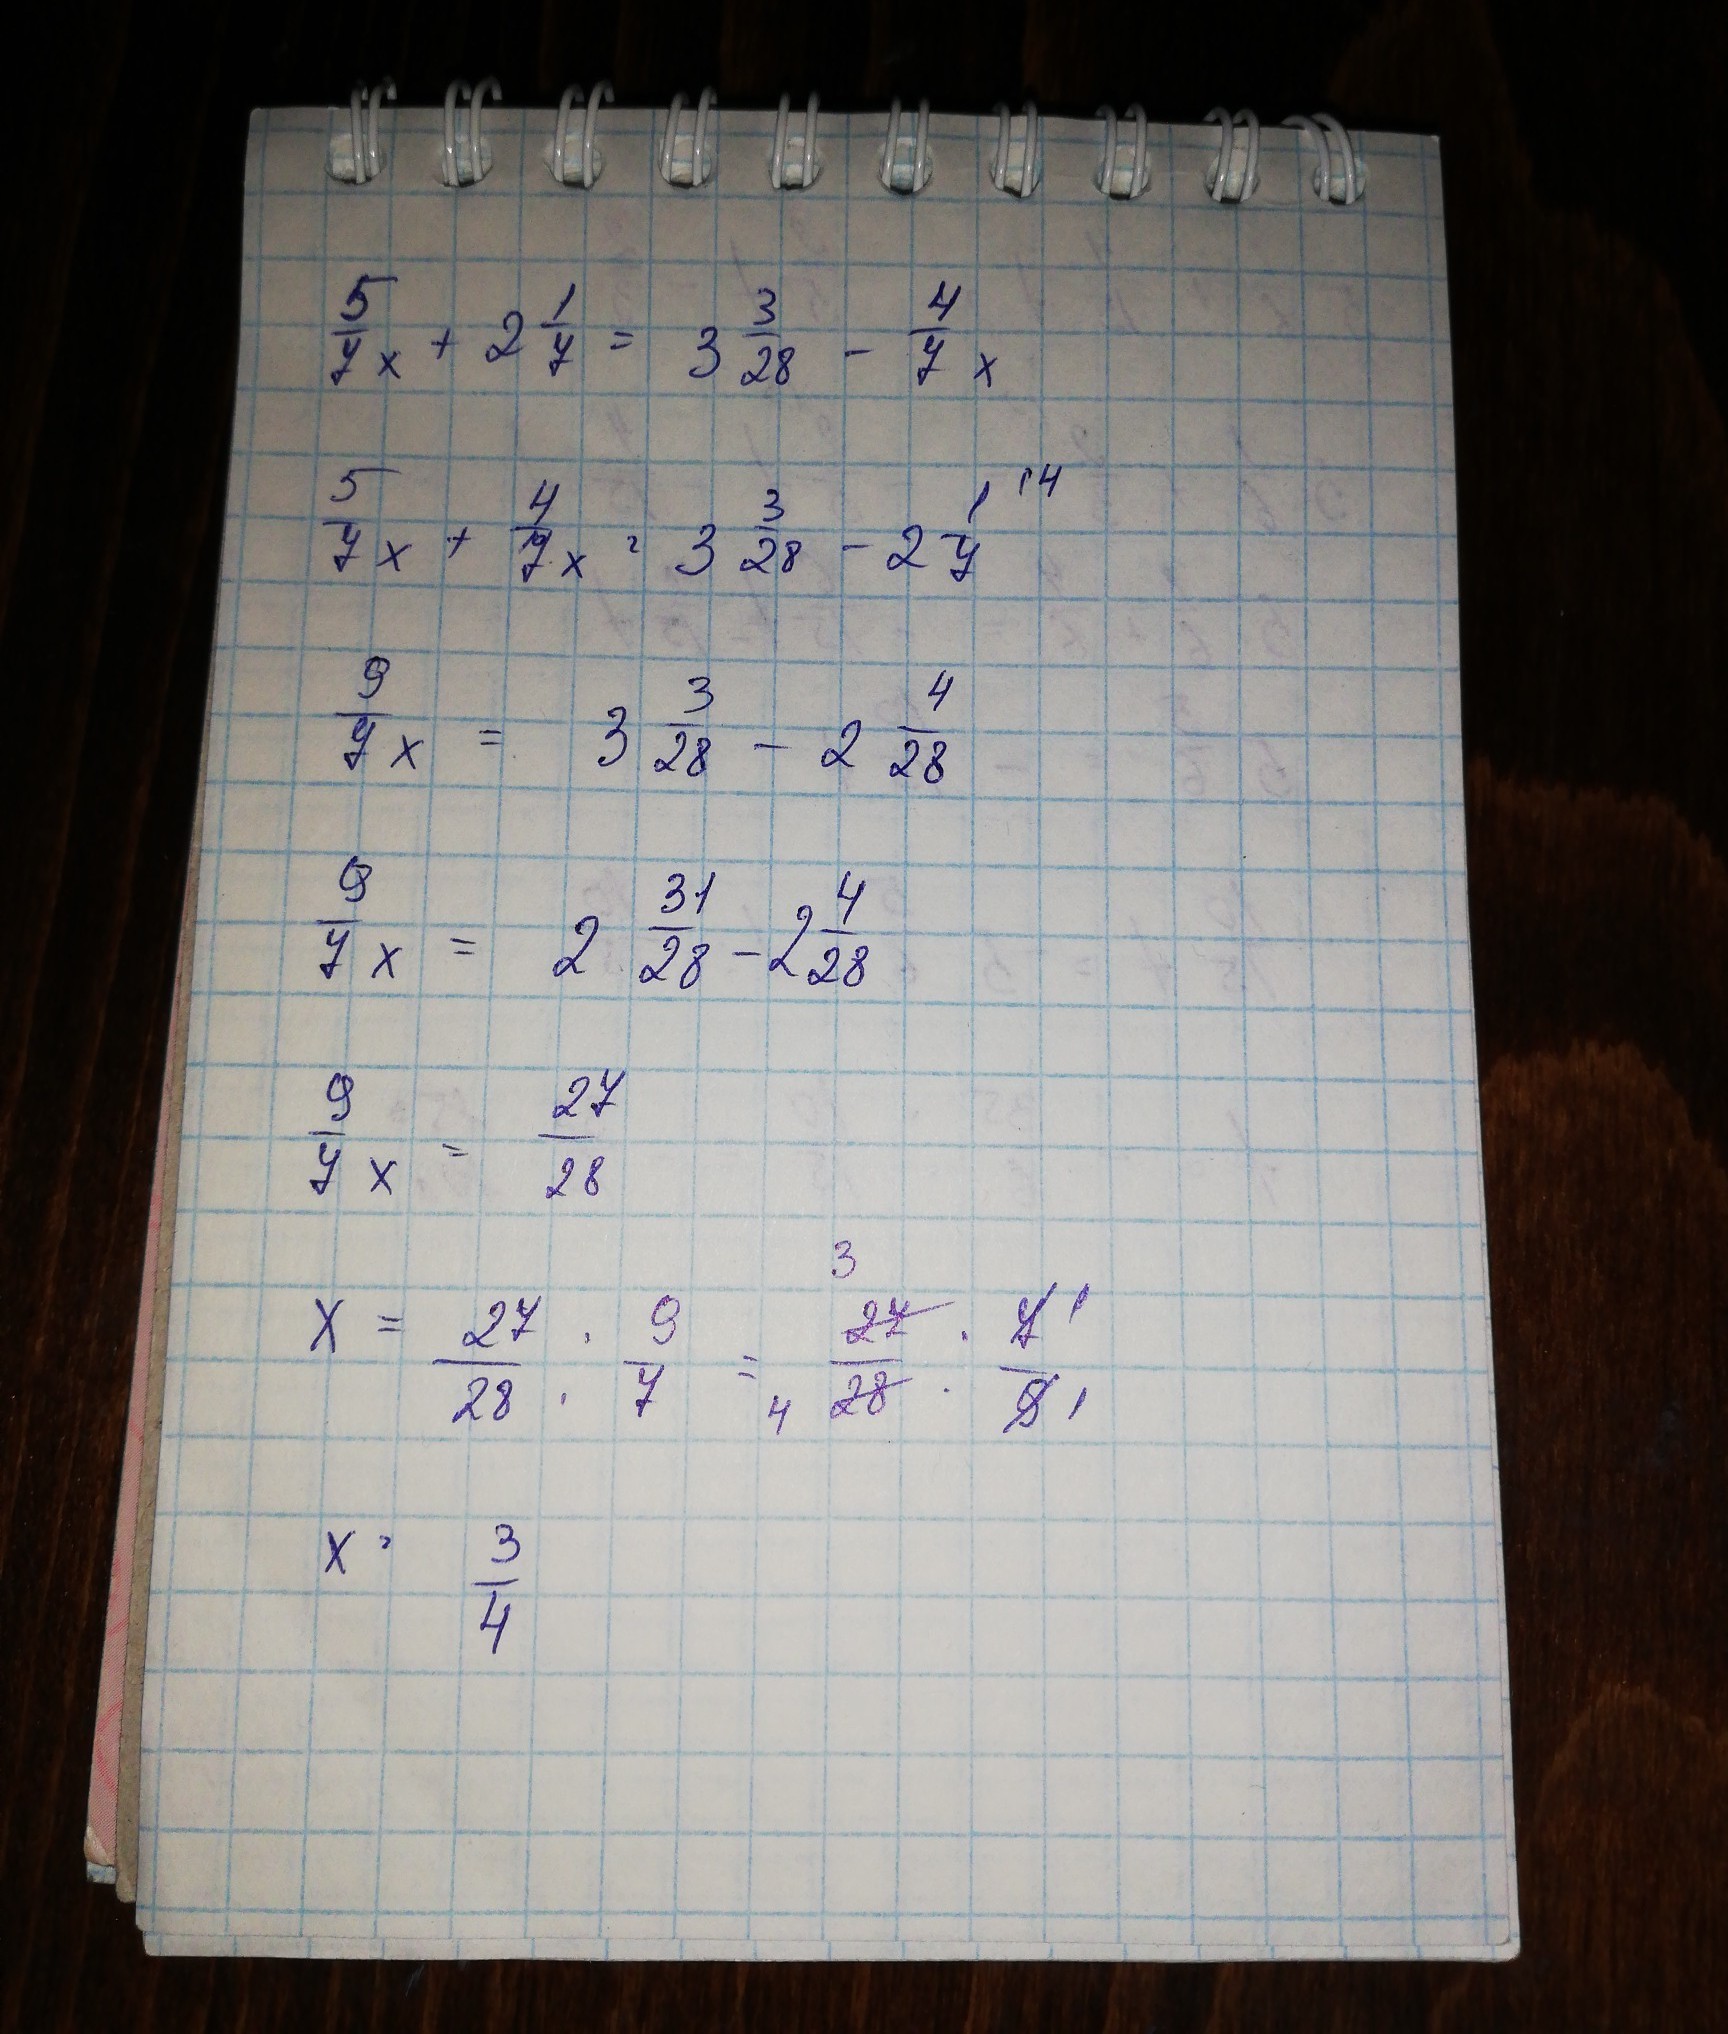 5/7 x + 2 1/7 = 3 3/28 - 4/7 x
5/7 x + 4/7 x = 3 3/28 - 2 1/7 |4
9/7 x = 3 3/28 - 2 4/28
9/7 x = 2 31/28 - 2 4/28
9/7 x = 27/28
x = 27/28 : 9/7 = 27/28 · 7/9 3 4 1 1
x = 3/4